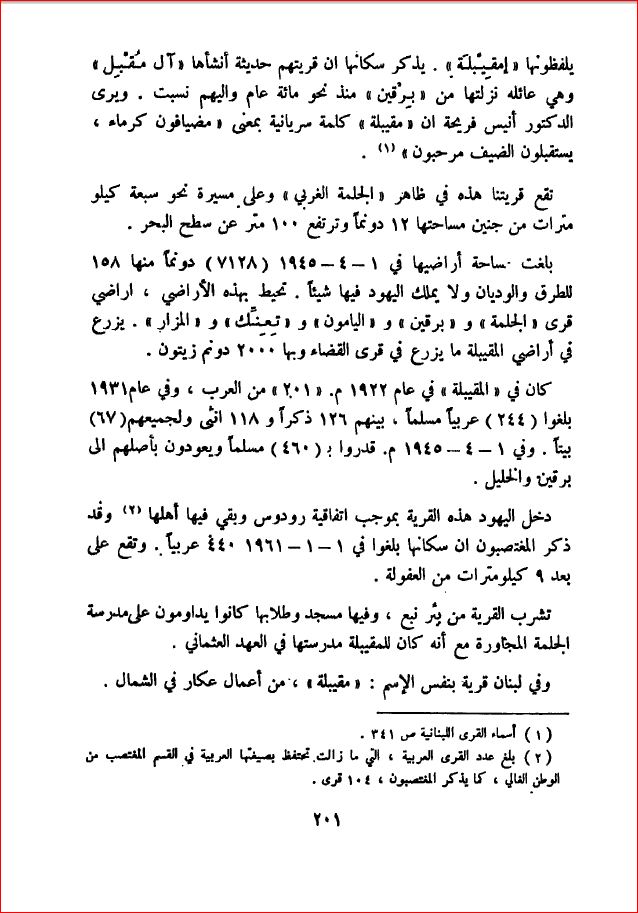 يلفظونها « إمقيبلة » . يذكر سكانها ان قريتهم حديثة أنشأها « آل مُقْبِل »
وهي عائله نزلتها من « بِرْقين » منذ نحو مائة عام واليهم نسبت . ويرى
الدكتور أنيس فريحة ان « مقيبلة » كلمة سريانية بمعنى « مضيافون كرماء ،
يستقبلون الضيف مرحبون » (١) .
تقع قريتنا هذه في ظاهر « الجلمة الغربي » وعلى مسيرة نحو سبعة كيلو
مترات من جنين مساحتها ١٢ دونماً وترتفع ١٠٠ متر عن سطح البحر .
بلغت مساحة أراضيها في ١ – ٤ – ١٩٤٥ (٧١٢٨) دونماً منها ١٥٨
للطرق والوديان ولا يملك اليهود فيها شيئاً . تحيط بهذه الأراضي ، اراضي
قرى « الجلمة » و « برقين » و « اليامون » و « تِعِنِّك » و « المزار » . يزرع
في أراضي المقيبلة ما يزرع في قرى القضاء وبها ٢٠٠٠ دونم زيتون .
كان في « المقيبلة » في عام ١٩٢٢ م. « ٢٠١ » من العرب ، وفي عام ١٩٣١
بلغوا ( ٢٤٤ ) عربياً مسلماً ، بينهم ١٢٦ ذكراً و ١١٨ انثى ولجميعهم (٦٧)
بيتاً . وفي ١ – ٤ – ١٩٤٥ م. قدروا بـ ( ٤٦٠ ) مسلماً ويعودون بأصلهم الى
برقين والخليل .
دخل اليهود هذه القرية بموجب اتفاقية رودوس وبقي فيها أهلها (٢) وقد
ذكر المغتصبون ان سكانها بلغوا في ١ – ١ – ١٩٦١ ٤٤٠ عربياً . وتقع على
بعد ٩ كيلومترات من العفولة .
تشرب القرية من بئر نبع ، وفيها مسجد وطلابها كانوا يداومون على مدرسة
الجلمة المجاورة مع أنه كان للمقيبلة مدرستها في العهد العثماني .
وفي لبنان قرية بنفس الإسم : « مقيبلة » ، من أعمال عكار في الشمال .
( ١ ) أسماء القرى اللبنانية ص ٣٤١ .
( ٢ ) بلغ عدد القرى العربية ، التي ما زالت تحتفظ بصيغتها العربية في القسم المغتصب من
الوطن الغالي ، كما يذكر المغتصبون ، ١٠٤ قرى .
٢٠١